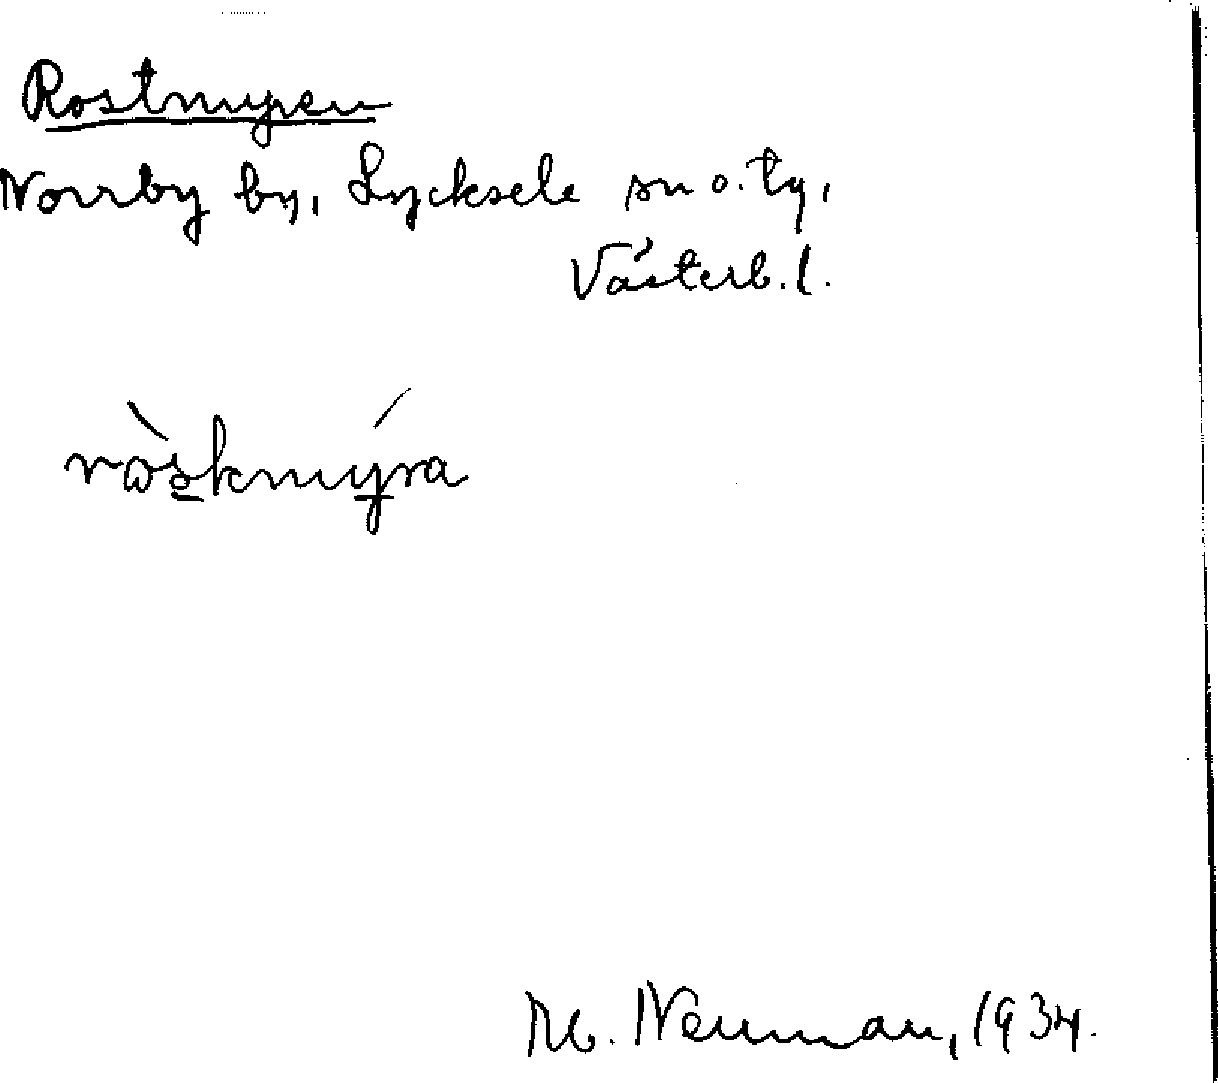 Rostmyren
Norrby by, Lycksele sn o. tg,
Västerb. l.
M. Neuman, 1934.